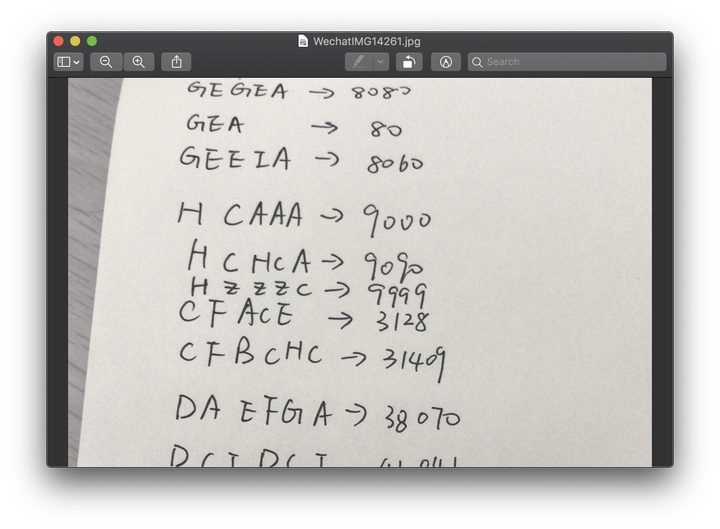 WechatIMG14261.jpg
Search
GEGEA → 8080
GEA → 80
GEEIA → 8060
HCAAA → 9000
HCHCA → 9090
HZZZC → 9999
CFACE → 3128
CFBCHC → 31409
DAEFGA → 38070